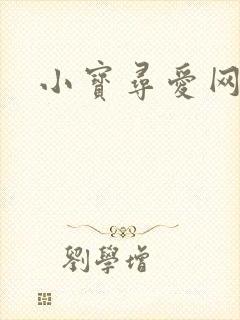 小寶尋愛网
劉學增